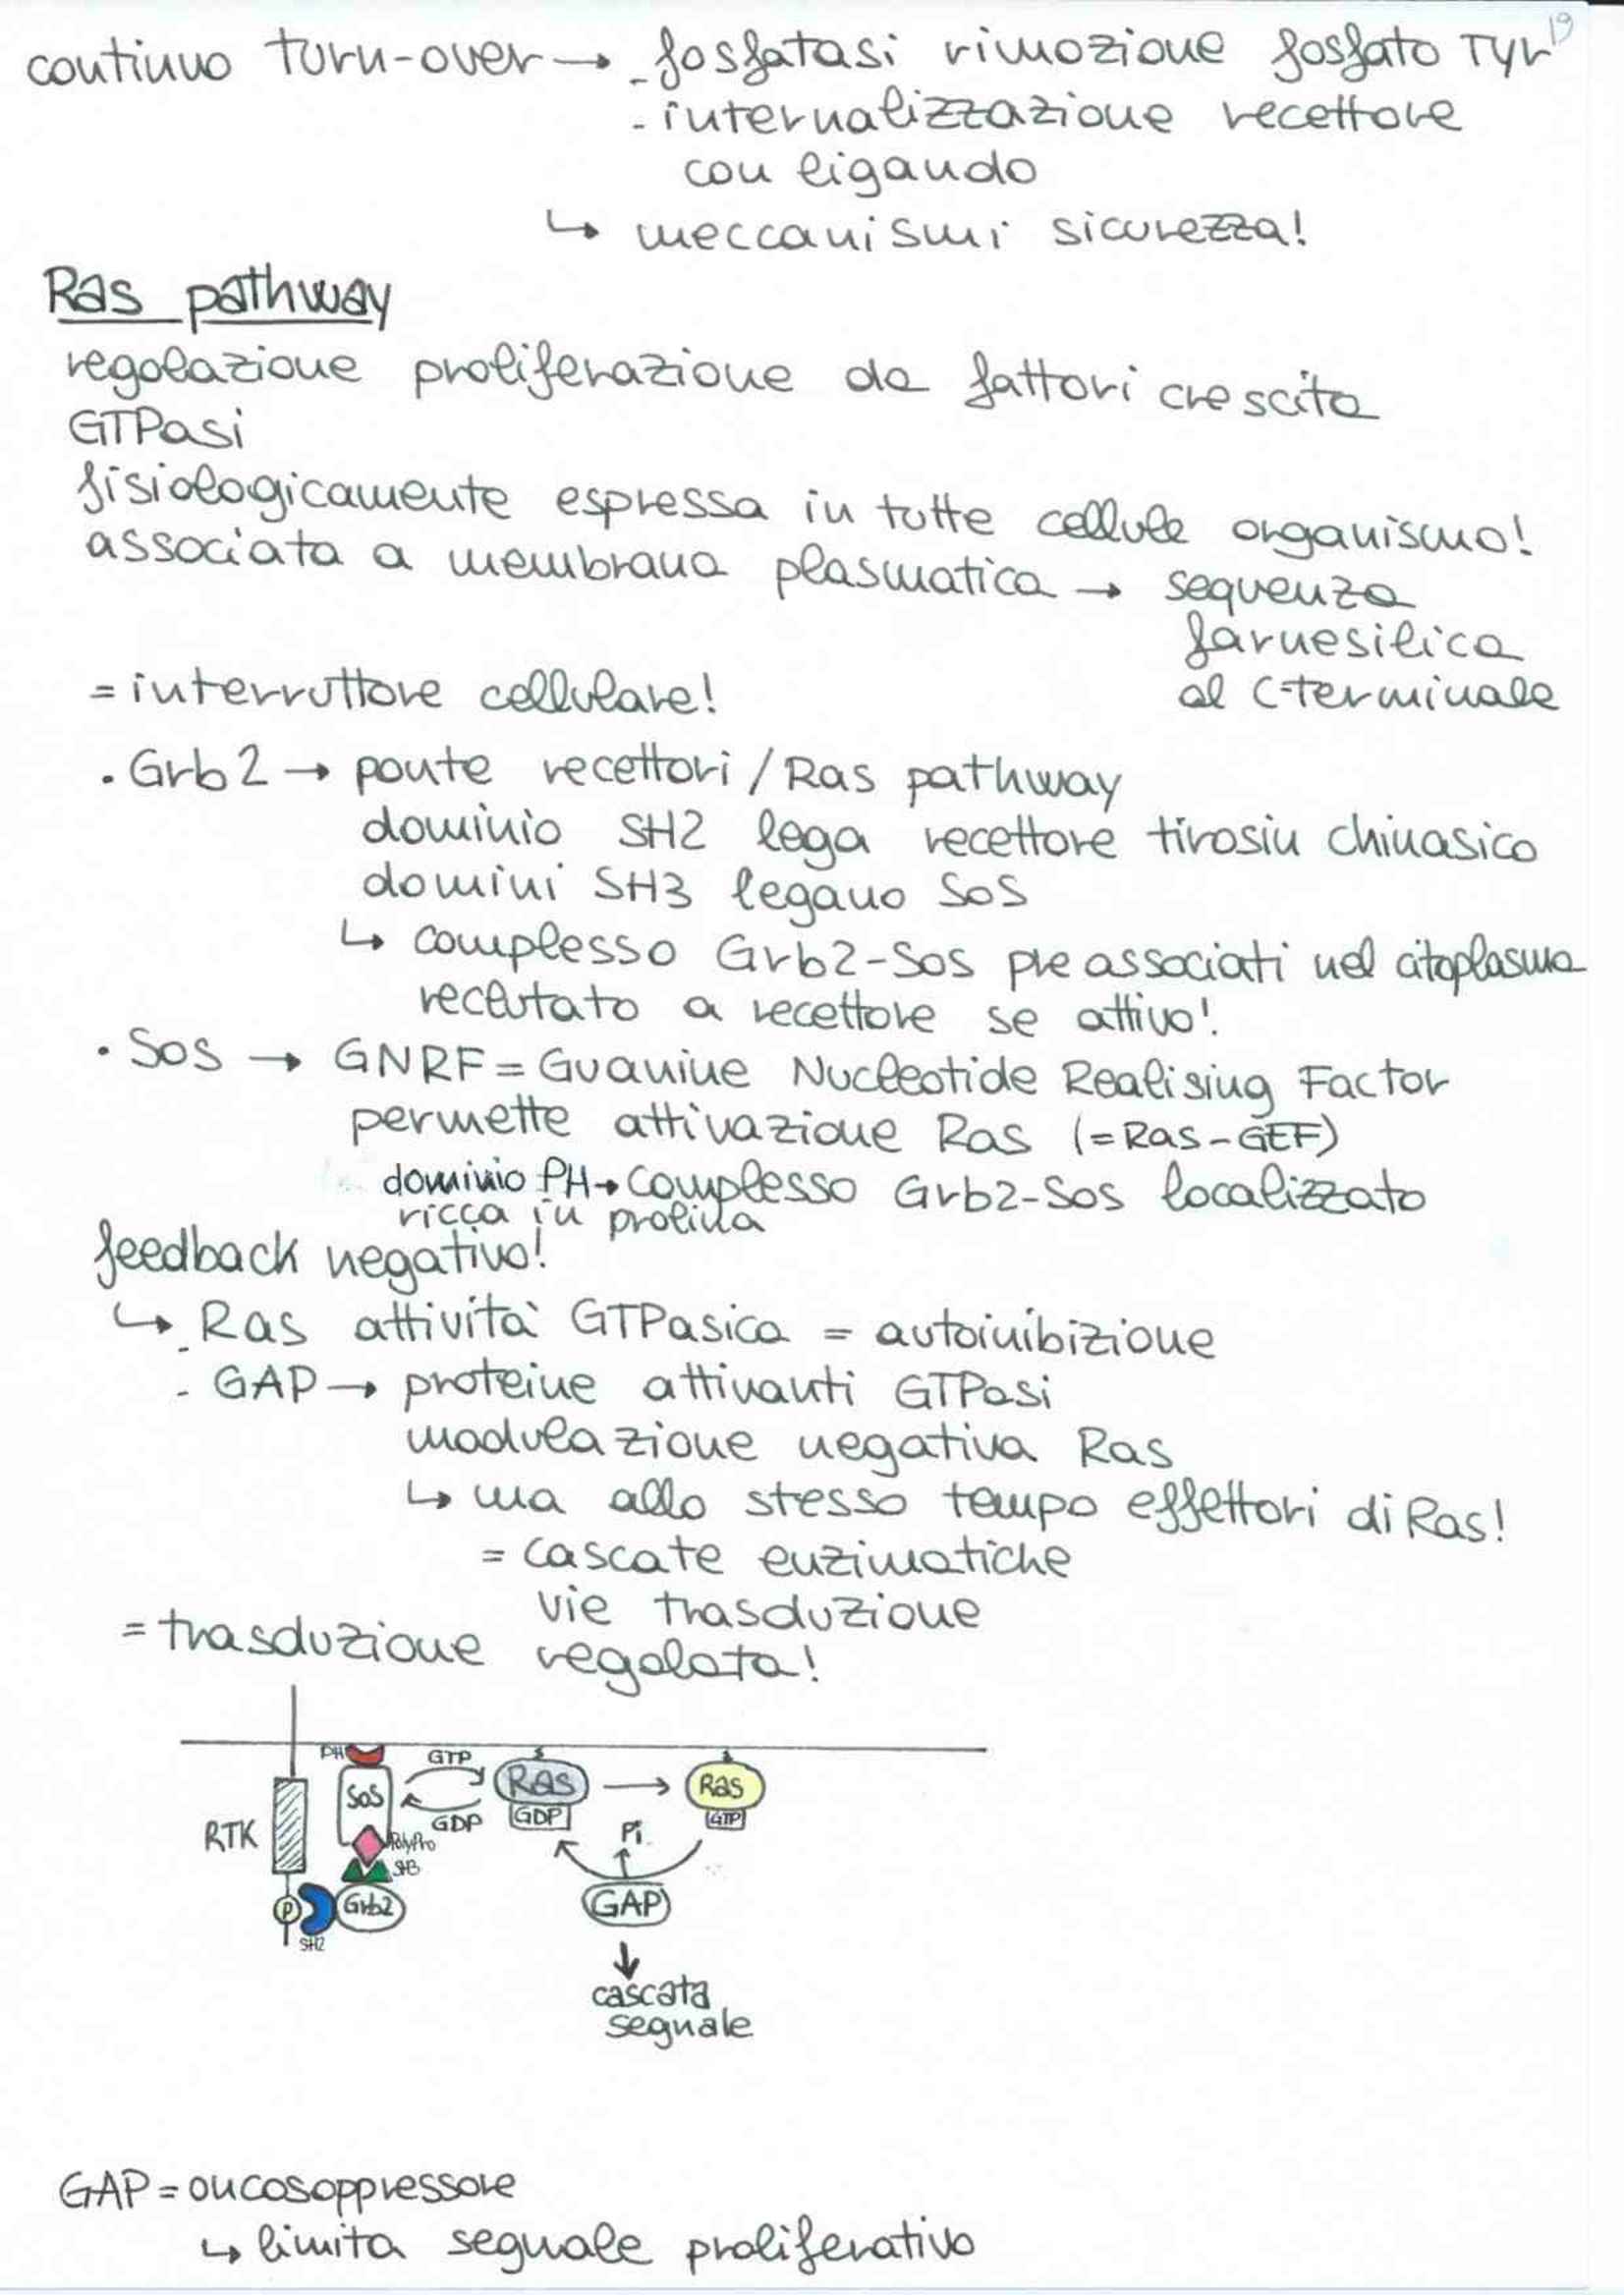 19
continuo turn-over → - fosfatasi rimozione fosfato Tyr
- internalizzazione recettore
con ligando
↳ meccanismi sicurezza!
Ras pathway
regolazione proliferazione da fattori crescita
GTPasi
fisiologicamente espressa in tutte cellule organismo!
associata a membrana plasmatica → sequenza
farnesilica
al C-terminale
= interruttore cellulare!
• Grb2 → ponte recettori / Ras pathway
dominio SH2 lega recettore tirosin chinasico
domini SH3 legano SoS
↳ complesso Grb2-Sos preassociati nel citoplasma
reclutato a recettore se attivo!
• Sos → GNRF = Guanine Nucleotide Realising Factor
permette attivazione Ras (= Ras-GEF)
dominio PH → complesso Grb2-Sos localizzato
ricca in prolina
feedback negativo!
↳ - Ras attività GTPasica = autoinibizione
- GAP → proteine attivanti GTPasi
modulazione negativa Ras
↳ ma allo stesso tempo effettori di Ras!
= cascate enzimatiche
vie trasduzione
= trasduzione regolata!
PH
GTP
SoS
Ras
→
Ras
RTK
GDP
GDP
GTP
PolyPro
Pi
SH3
P
Grb2
GAP
SH2
↓
cascata
segnale
GAP = oncosoppressore
↳ limita segnale proliferativo